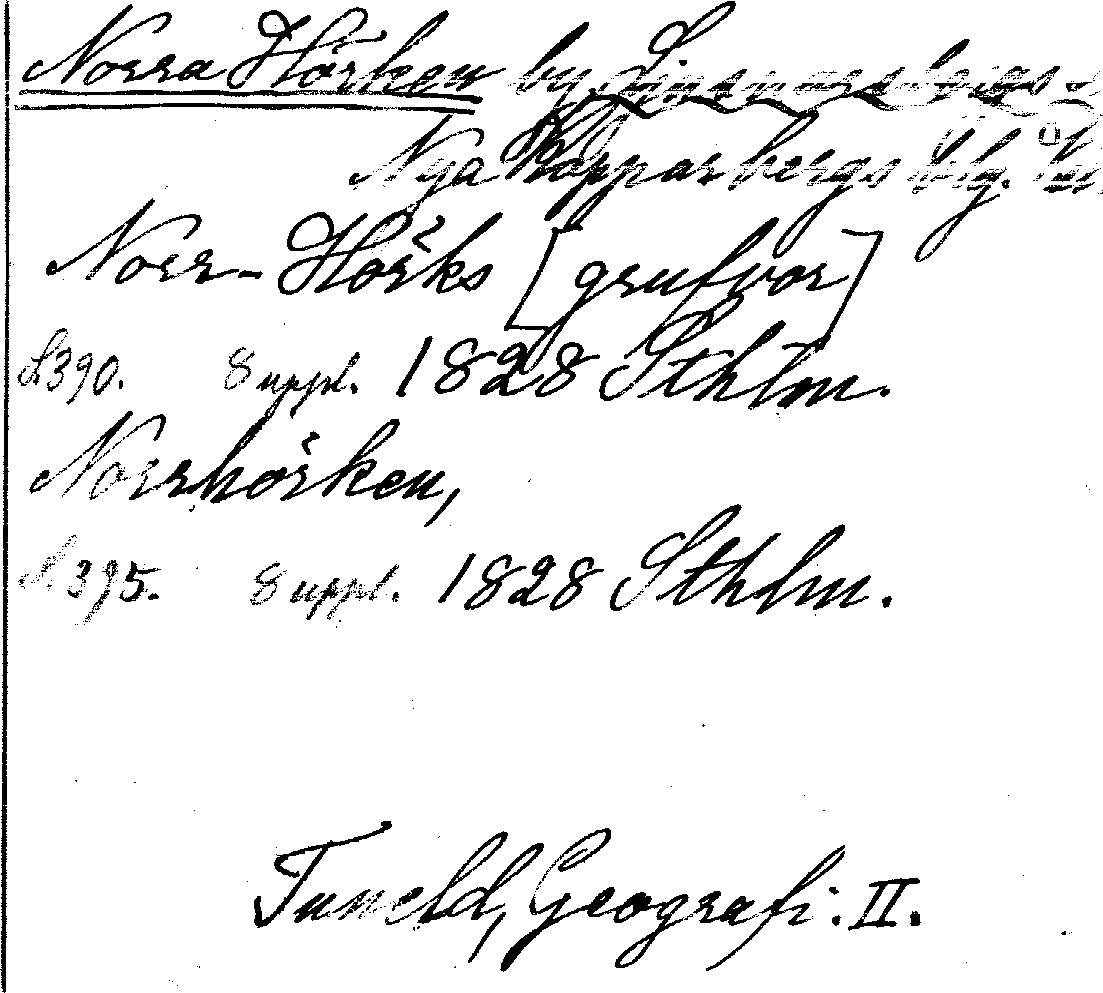 Norra Hörken by Ljusnarsbergs-
Nya Kopparbergs
Norr-Hörks [grufvor]
S.390. Suppl. 1828 Sthlm.
Norrhörken,
S.395. Suppl. 1828 Sthlm.
Tuneld, Geografi. II.